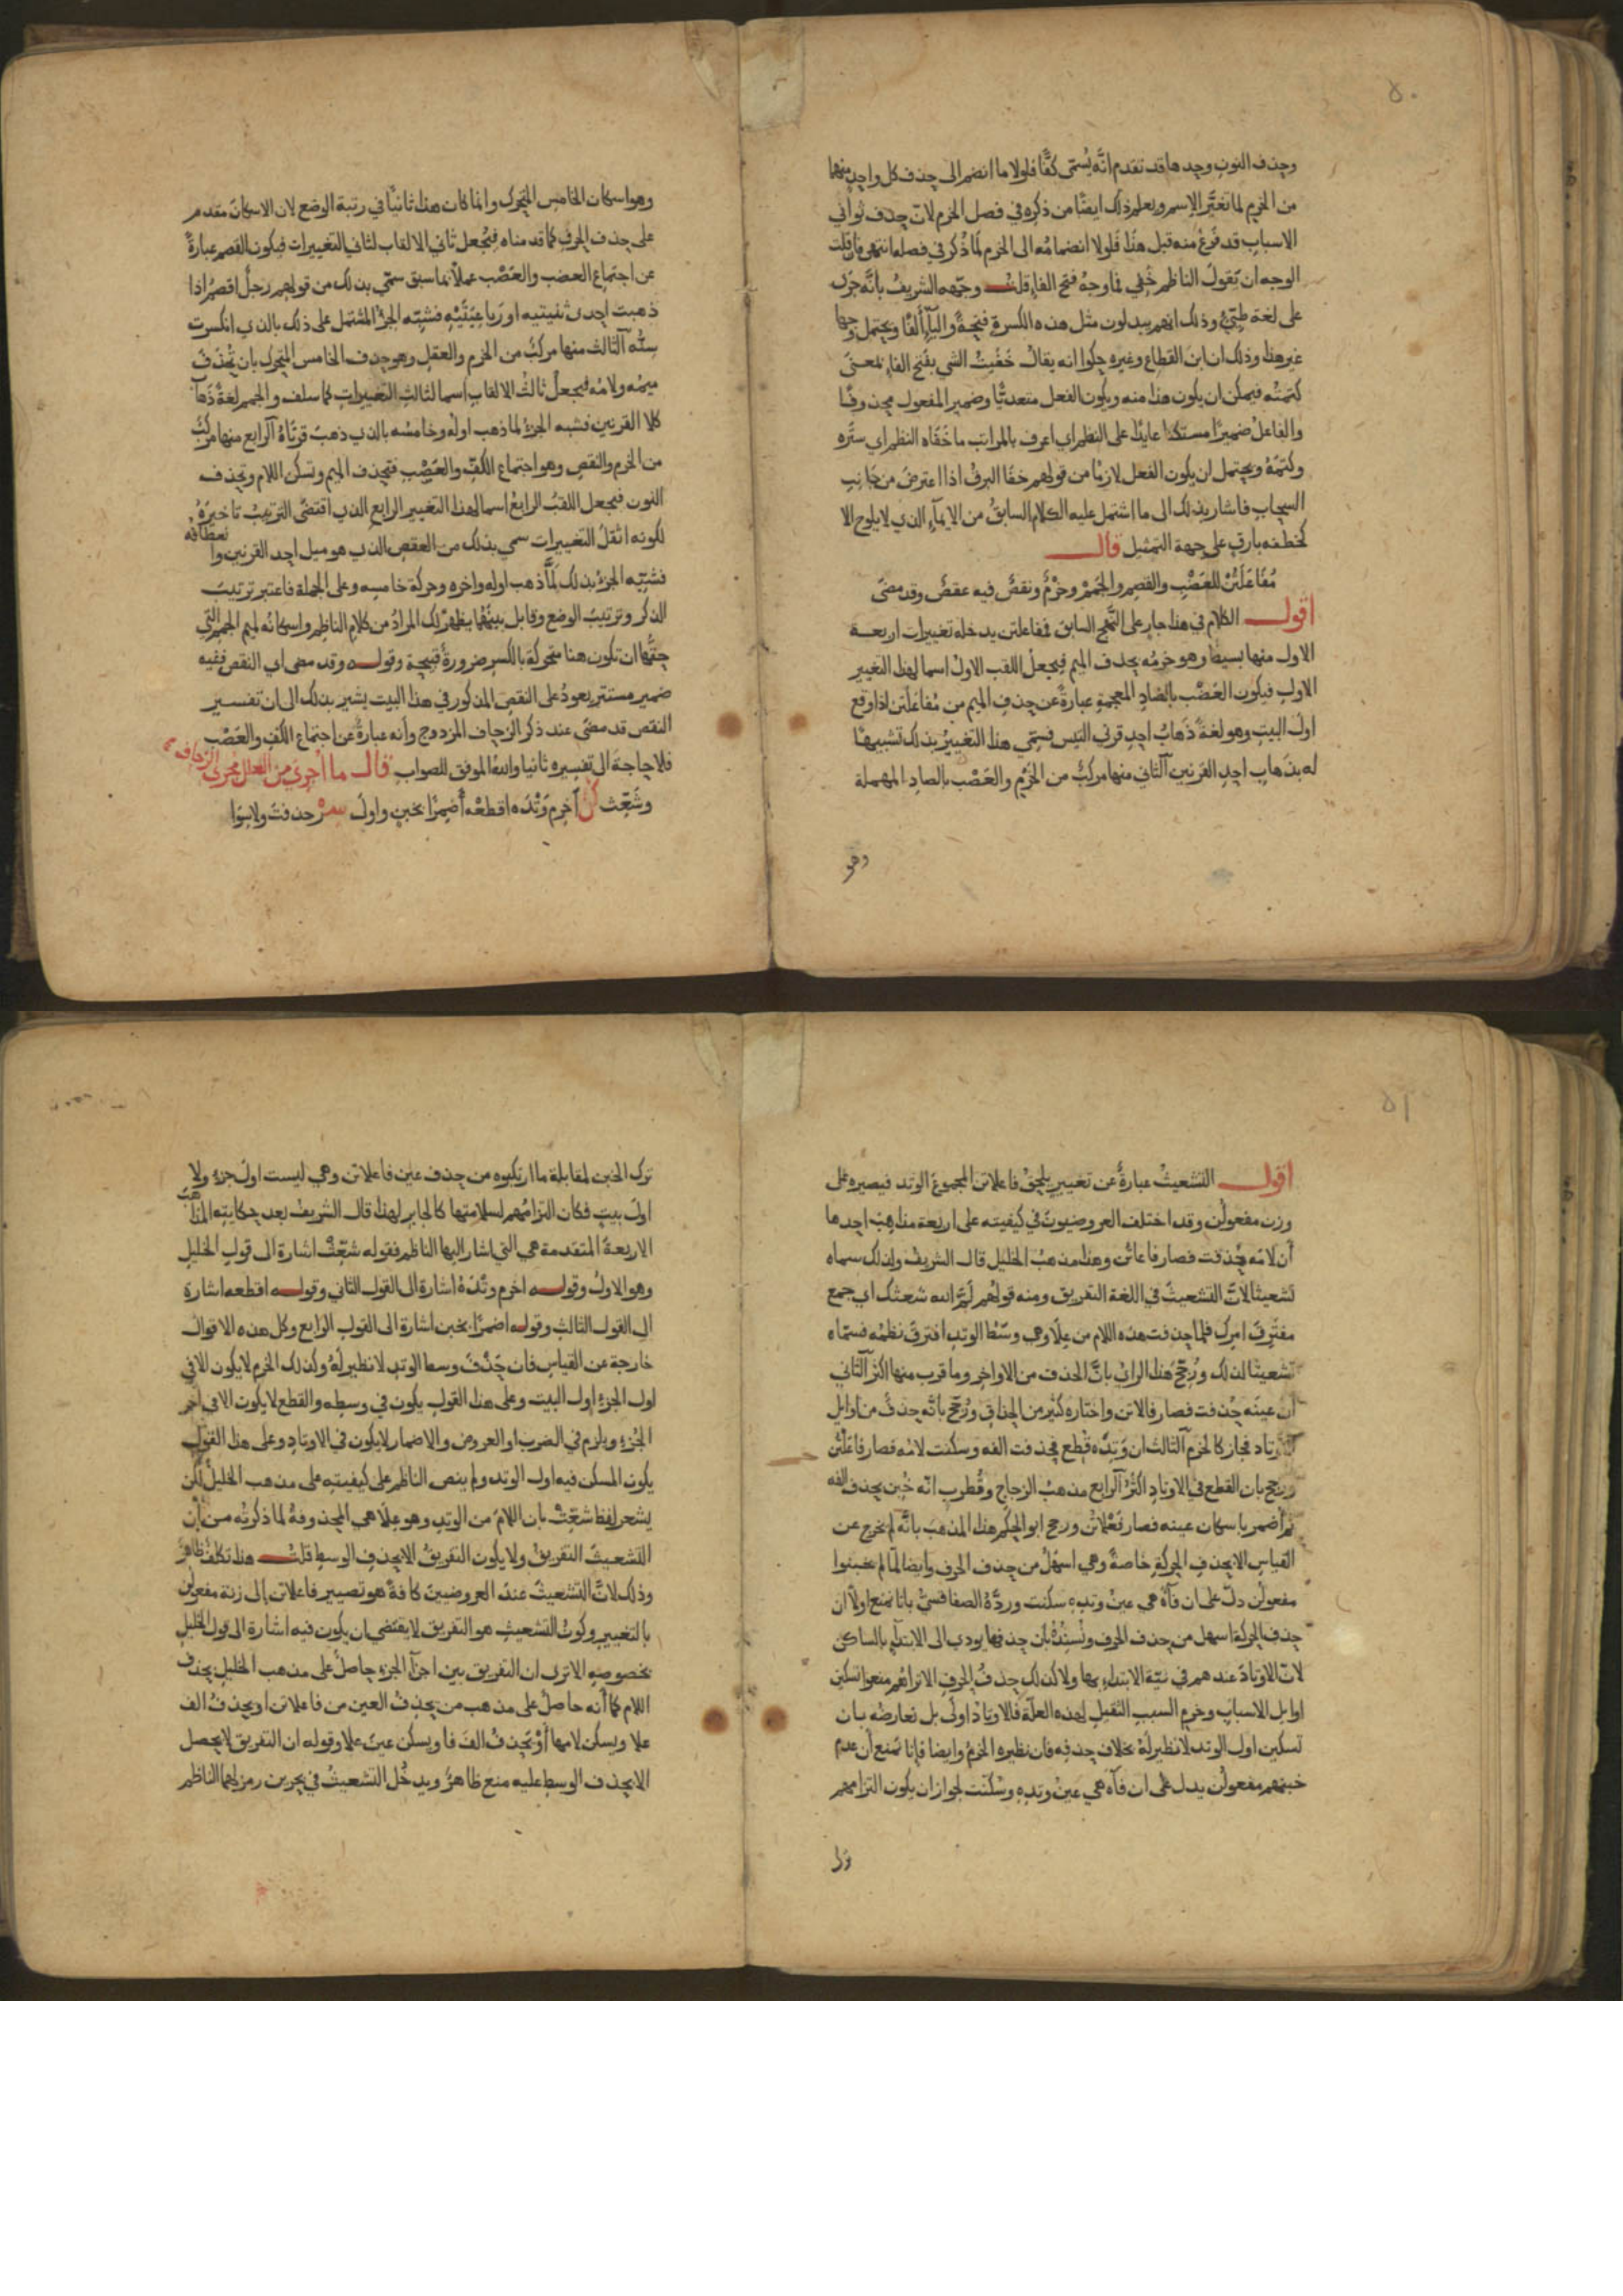 ٥٠
وحذف النون وحدها قد تقدم انَّه يُسمّى كفًّا فلولا ما انضم الى حذف كل واحد منهما
من الخرم لما تغيَّر الاسم ويعلم ذلك ايضًا من ذكره في فصل الخرم لانّ حذف ثواني
الاسباب قد فَرغ منه قبل هذا فَلولا انضمامُه الى الخرم لَما ذُكر في فصله انتهى فان قلت
الوجه ان يَقولَ الناظم خَفِي فما وجهُ فتح الفاء قلت وجّهه الشريفُ بانَّه جرى
على لغة طيّئ وذلك انهم يبدلون مثل هذه الكسرة فتحةً والياءَ ألفًا ويحتمل وجها
غير هذا وذلك ان ابن القطاع وغيره حكوا انه يقالُ خَفَيتُ الشي بفتح الفاء بمعنى
كتمتُه فيمكن ان يكون هذا منه ويكون الفعل متعديًّا وضمير المفعول محذوفًا
والفاعلُ ضميرًا مستكنًا عايدًا على النظم اي اعرف بالمراتب ما خَفَاه النظم اي ستَره
وكتمَهُ ويحتمل ان يكون الفعل لازمًا من قولهم خفَا البرقُ اذا اعترضَ من جَانبِ
السحابِ فاشار بذلك الى ما اشتمل عليه الكلام السابقُ من الايماءِ الذي لا يلوح الا
كخطفه بارقٍ على جهة التمثيل قال
مُفَاعَلَتُنْ للعَضْبِ والقصم والجَمَمْ وخرْمٌ ونقصٌ فيه عقصٌ وقد مضى
اقول الكلام في هذا جارٍ على النَّهج السابق فمفاعلتن يدخله تغييرات اربعة
الاول منها بسيطٌ وهو خرمُه بحذف الميم فيجعلُ اللقب الاولُ اسما لهذا التغيير
الاولِ فيكون العَضْب بالضادِ المعجمةِ عبارةً عن حذفِ الميم من مُفَاعَلَتن اذا وقع
اولَ البيتِ وهو لغةً ذَهابُ احدِ قرني التيس فسمّي هذا التغييرُ بذلك تشبيهًا
له بذهابِ احدِ القرنين الثاني منها مركبٌ من الخَرْمِ والعَصْب بالصادِ المهملة
وهو
وهو اسكان الخامس المتحرك وانما كان هذا ثانيًا في رتبة الوضع لان الاسكانَ مقدم
على حذف الحرف كما قدمناه فيُجعل ثاني الالقاب لثاني التغييرات فيكون القصم عبارةً
عن اجتماع العضب والعَصْب عملًا بما سبق سمّي بذلك من قولهم رجلٌ اقصمُ اذا
ذهبت احدى ثنيتيه او رَباعِيَتَيْهِ فشبّه الجزءُ المشتمل على ذلك بالذي انكسرت
سِنُّه الثالث منها مركبٌ من الخرم والعقلِ وهو حذف الخامس المتحرك بان تُحذفَ
ميمُه ولامُه فيجعلُ ثالثُ الالقابِ اسما لثالثِ التغييراتِ كما سلف والجمم لغةً ذهابُ
كلا القرنين فشبه الجزءُ لما ذهب اولُه وخامسُه بالذي ذهبت قرنَاهُ الرابع منها مركبٌ
من الخرم والنقص وهو اجتماع الكفِّ والعَصْبِ فتحذف الميم وتسكن اللام وتحذف
النون فيجعل اللقبُ الرابعُ اسما لهذا التغيير الرابع الذي اقتضَى الترتيبُ تاخيرَهُ
لكونه اثقلَ التغييرات سمي بذلك من العقصِ الذي هو ميل احد القرنين وانعطافُه
فشبّه الجزءُ بذلك لَمَّا ذهب اوله واخره وحركة خامسِه وعلى الجملة فاعتبر ترتيبَ
الذكر وترتيبَ الوضع وقابل بينهما يظهرُ لك المرادُ من كلامِ الناظم واسكانُه لميم الجمم التي
حقُّها ان تكون هنا متحركةً بالكسر ضرورةٌ قبيحة وقوله وقد مضى اي النقص ففيه
ضمير مستتر يعودُ على النقصِ المذكور في هذا البيت يشير بذلك الى ان تفسير
النقص قد مضَى عند ذكر الزحاف المزدوج وأنه عبارةٌ عن اجتماع الكفِّ والعَصْبِ
فلا حاجةَ الى تفسيرِه ثانيا واللهُ الموفق للصواب قال ما اُجري من العلل مجرى الزحاف
وشَعِّث كن اَخرِم وَتْدَه اقطعْه أَضمِرًا بخبنٍ واولَ سرْ حذفتَ ولا بَوَا
٥١
اقول التشعيثُ عبارةٌ عن تغييرٍ يلحقُ فاعلاتن المجموعَ الوتد فيصيره على
وزن مفعولُن وقد اختلف العروضيونَ في كيفيته على اربعة مذاهبَ احدها
أن لامَه حُذفت فصار فاعاتُن وهذا مذهبُ الخليل قال الشريفُ ولذلك سماه
تشعيثًا لانَّ التشعيثَ في اللغة التفريق ومنه قولُهم لَمَّ الله شعثك اي جمع
مفترِقَ امرِك فلما حذفت هذه اللام من عِلَا وهي وسَطُ الوتدِ افترقَ نظمُه فسمّاه
تشعيثًا لذلك ورُجّحَ هذا الرائُ بانَّ الحذف من الاواخرِ وما قرب منها اكثرُ الثاني
ان عينَه حُذفت فصار فالاتن واختاره كثير من الحذاقِ ورُجّح بانَّه حذفٌ من اوايلِ
الاوتاد فجاز كالخرمِ الثالث ان وَتِدَه قُطع فحذفت الفه وسكنت لامُه فصار فاعَلْتُن
ورجح بان القطع في الاوتادِ اكثرُ الرابع مذهبُ الزجاجِ وقُطربٍ انّه خُبِن بحذف الفه
ثم أضمر باسكان عينه فصار فَعْلاتُن ورجح ابو الحكم هذا المذهبَ بانَّه لم يخرج عن
القياس الا بحذفِ الحركةِ خاصةً وهي اسهلُ من حذف الحرف وايضا لمّا لم يخبنوا
مفعولُن دلّ على ان فآءَهُ هي عينُ وتدِهِ سكنت وردَّهُ الصفاقسيُّ بانا نمنع اولًا ان
حذف الحركةِ اسهل من حذف الحرف ونُسنِدُهُ بان حذفها يودي الى الابتداءِ بالساكن
لانّ الاوتادَ عندهم في نيّة الابتداءِ بها ولا كذلك حذفُ الحرف الا تراهُم منعوا تسكين
اوايل الاسبابِ وخرمِ السببِ الثقيلِ لهذه العلّة فالاوتادُ اولَى بل نعارضُه بان
تسكين اول الوتد لا نظير لَهُ بخلاف حذفِه فان نظيره الخرمُ وايضا فإنا نمنع أن عدم
خبنهم مفعولُن يدل على ان فآءَه هي عينُ وتدِهِ وسُكّنت لجواز ان يكون التزامهم
ترك
ترك الخبن لمقابلة ما ارتكبوه من حذف عين فاعلاتن وهي ليست اولَ جزءٍ ولا
اولَ بيتٍ فكان التزامُهم لسلامتها كالجابر لهذا قال الشريفُ بعد حكايتِه المذاهبَ
الاربعةَ المتقدمة هي التي اشار اليها الناظم فقوله شعِّثْ اشارة الى قولِ الخليلِ
وهو الاولُ وقوله اخرم وتْدَهُ اشارة الى القول الثاني وقوله اقطعه اشارة
الى القول الثالث وقوله اضمرًا بخبن اشارة الى القولِ الرابع وكل هذه الاقوال
خارجة عن القياسِ فان حَذْفَ وسط الوتدِ لا نظير لَهُ وكذلك الخرم لا يكون الا في
اول الجزءِ اول البيت وعلى هذا القولِ يكون في وسطِه والقطع لا يكون الا في اخر
الجُزءِ ويلزم في الضرب او العروض والاضمار لا يكون في الاوتادِ وعلى هذا القول
يكون المسكن فيه اول الوتد ولم ينص الناظم على كيفيتِه على مذهب الخليل لكن
يشعر لفظ شعِّثْ بان اللامَ من الوتدِ وهو عِلَا هي المحذوفةُ لما ذكرتُه من أن
التشعيثَ التفريقُ ولا يكون التفريقُ الا بحذفِ الوسطِ قلت هذا تكلّفٌ ظاهرٌ
وذلك لانَّ التشعيثَ عندَ العروضيينَ كافةً هو تصيير فاعلاتن إلى زنة مفعولن
بالتغيير وكونُ التشعيثِ هو التفريق لا يقتضي ان يكون فيه اشارة الى قول الخليل
بخصوصِه الا ترى ان التفريق بين اجزآءِ الجزءِ حاصلٌ على مذهب الخليلِ بحذف
اللام كما أنه حاصلٌ على مذهب من يحذِفُ العين من فاعلاتن او يحذفُ الف
علا ويسكن لامها أوْ يحذفُ الفَ فا ويسكن عينَ علا وقوله ان التفريق لا يحصل
الا بحذف الوسطِ عليه منع ظاهرٌ ويدخُل التشعيثُ في بحرين رمز لهما الناظم